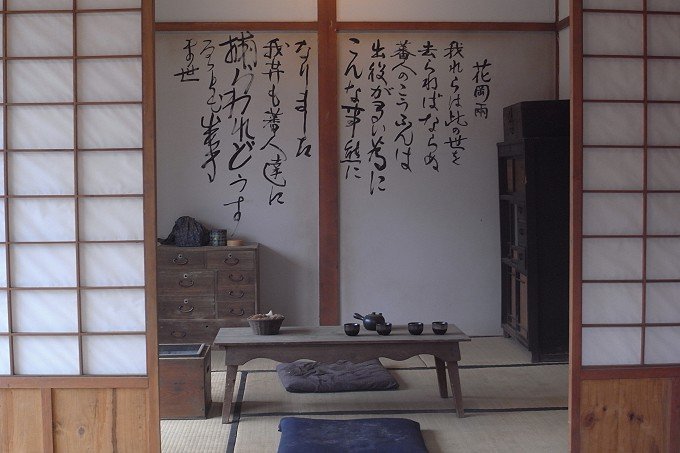 花岡
我れらは此の世を
去らねばならぬ
蕃人のこうふんは
出役が多い為に
こんな事態に
なりました
我等も蕃人達に
捕われどうす
ることも出来
ま世